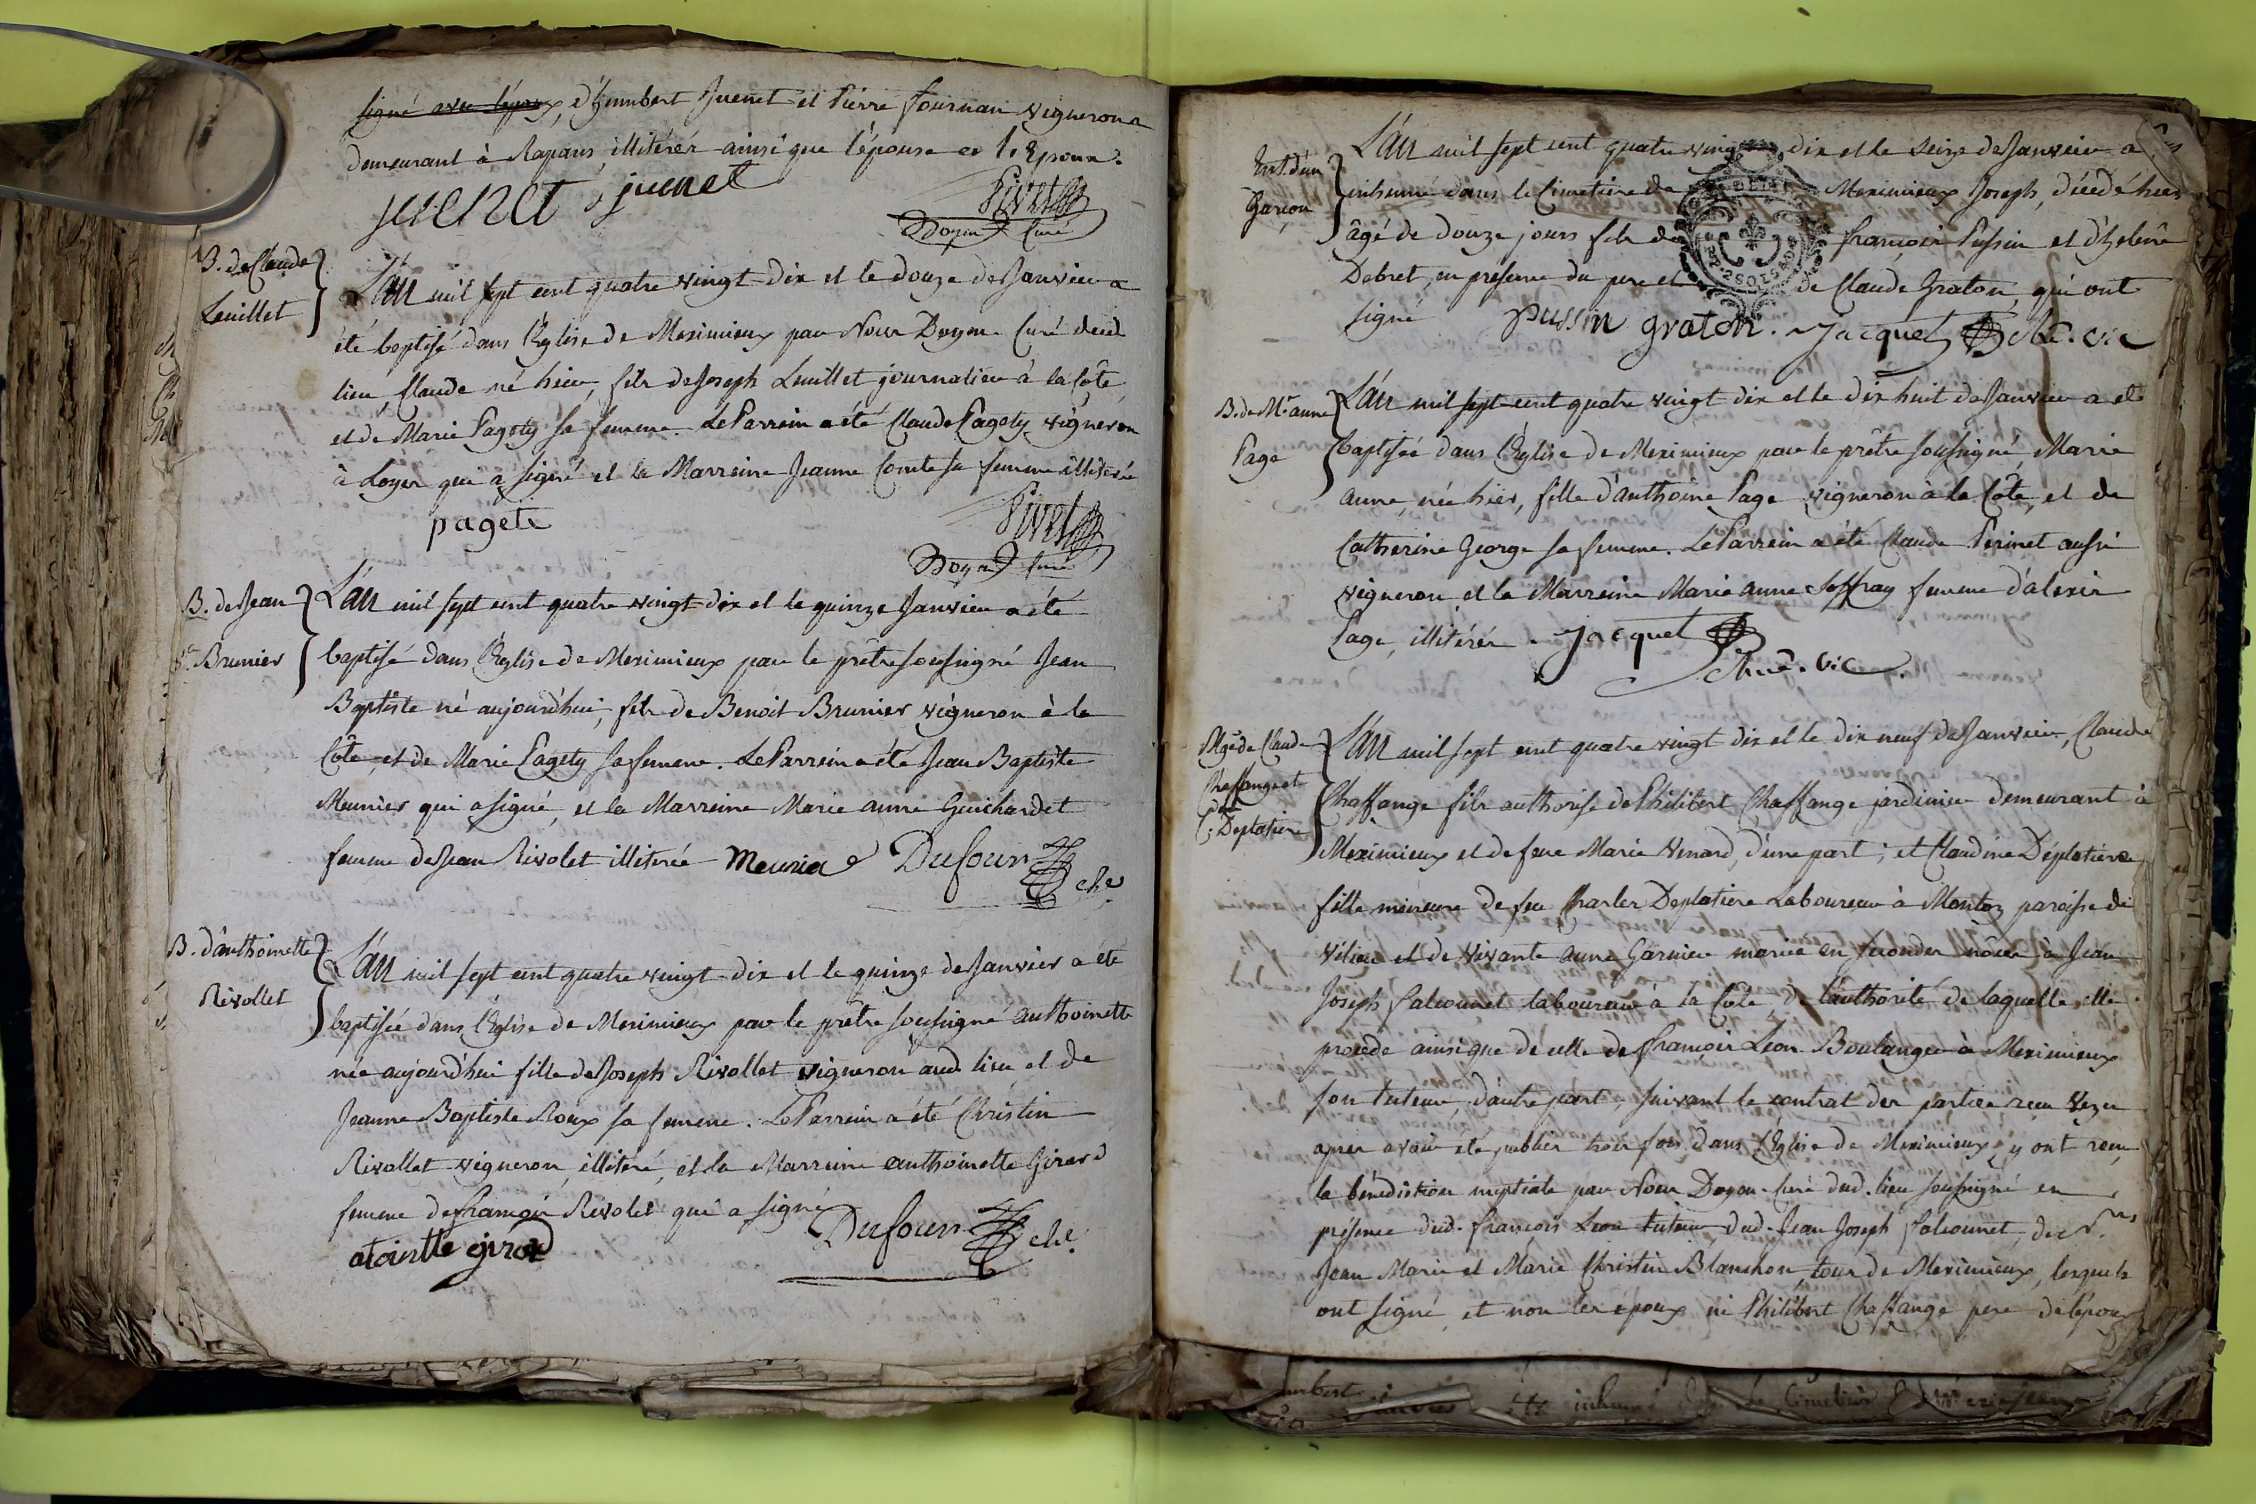 signé avec l'époux, d'humbert Juenet et Pierre fournan vigneron
demeurant à Rapans, illitérés ainsi que l'épouse et l'Epoux.
juenet juenet Pivet
Doyen Curé
B. de Claude
Leuillet
L'an mil sept cent quatre vingt dix et le douze de Janvier a
été baptisé dans l'Eglise de Meximieux par Nous Doyen Curé dud
lieu, Claude né hier, fils de Joseph Leuillet journalier à la Côte
et de Marie Pagety sa femme. Le Parrein a été Claude Pagety vigneron
à Loyes qui a signé et la Marreine Jeanne Comte sa femme illitérée
pagete Pivet
Doyen Curé
B. de Jean
Bte Brunier
L'an mil sept cent quatre vingt dix et le quinze Janvier a été
baptisé dans l'Eglise de Meximieux par le prêtre soussigné Jean
Baptiste né aujourd'hui, fils de Benoit Brunier vigneron à la
Côte et de Marie Pagety sa femme. Le Parrein a été Jean Baptiste
Meunier qui a signé, et la Marreine Marie anne Guichardet
femme de Jean Rivolet illiterée Meunie Dufour che.
B. d'anthoinette
Rivollet
L'an mil sept cent quatre vingt dix et le quinze de Janvier a été
baptisée dans l'Eglise de Meximieux par le prêtre soussigné anthoinette
née aujourd'hui fille de Joseph Rivollet vigneron aud. lieu et de
Jeanne Baptiste Roux sa femme. Le Parrein a été Christin
Rivollet vigneron, illiteré, et la Marreine anthoinette Girard
femme de françois Rivolet qui a signé
atointte girard Dufour che.
Ent. d'un
Garçon
L'an mil sept cent quatre vingt dix et le seize de Janvier a été
inhumé dans le Cimetiere de Meximieux Joseph, décedé hier
âgé de douze jours fils de françois Pussin et d'helene
Debret, en présence du pere et de Claude Graton, qui ont
signé pussin graton. Jacquet che. vic
B. de Me. anne
Page
L'an mil sept cent quatre vingt dix et le dix huit de Janvier a été
baptisée dans l'Eglise de Meximieux par le prêtre soussigné, Marie
anne, née hier, fille d'anthoine Page vigneron à la Côte, et de
Catherine George sa femme. Le Parrein a été Claude Perinet aussi
vigneron et la Marreine Marie anne Joffray femme d'alexis
Page, illitérés. Jacquet
che. vic.
Mge de Claude
Chaffange et
de
C. Deplatiere
L'an mil sept cent quatre vingt dix et le dix neuf de Janvier, Claude
Chaffange fils authorisé de Philibert Chaffange jardinier demeurant à
Meximieux et de feue Marie Venard, d'une part; et Claudine Déplatiere
fille mineure de feu Charles Deplatiere Laboureur à Montoz paroisse de
Vilieu et de vivante anne Garnier mariée en secondes nôces à Jean
Joseph falconnet laboureur à la Côte de l'authorité de laquelle elle
procede ainsi que de celle de françois Léon Boulanger à Meximieux
son tuteur, d'autre part, suivant le contrat des parties recu
après avoir été publiés trois fois dans l'Eglise de Meximieux, y ont reçu
la bénédiction nuptiale par Nous Doyen Curé dud. lieu soussigné en
présence dud. françois Leon tuteur, dud. Jean Joseph falconnet, de Srs
Jean Marie et Marie Christin Blanchon, tous de Meximieux, lesquels
ont signé, et non les époux ni Philibert Chaffange pere de l'époux